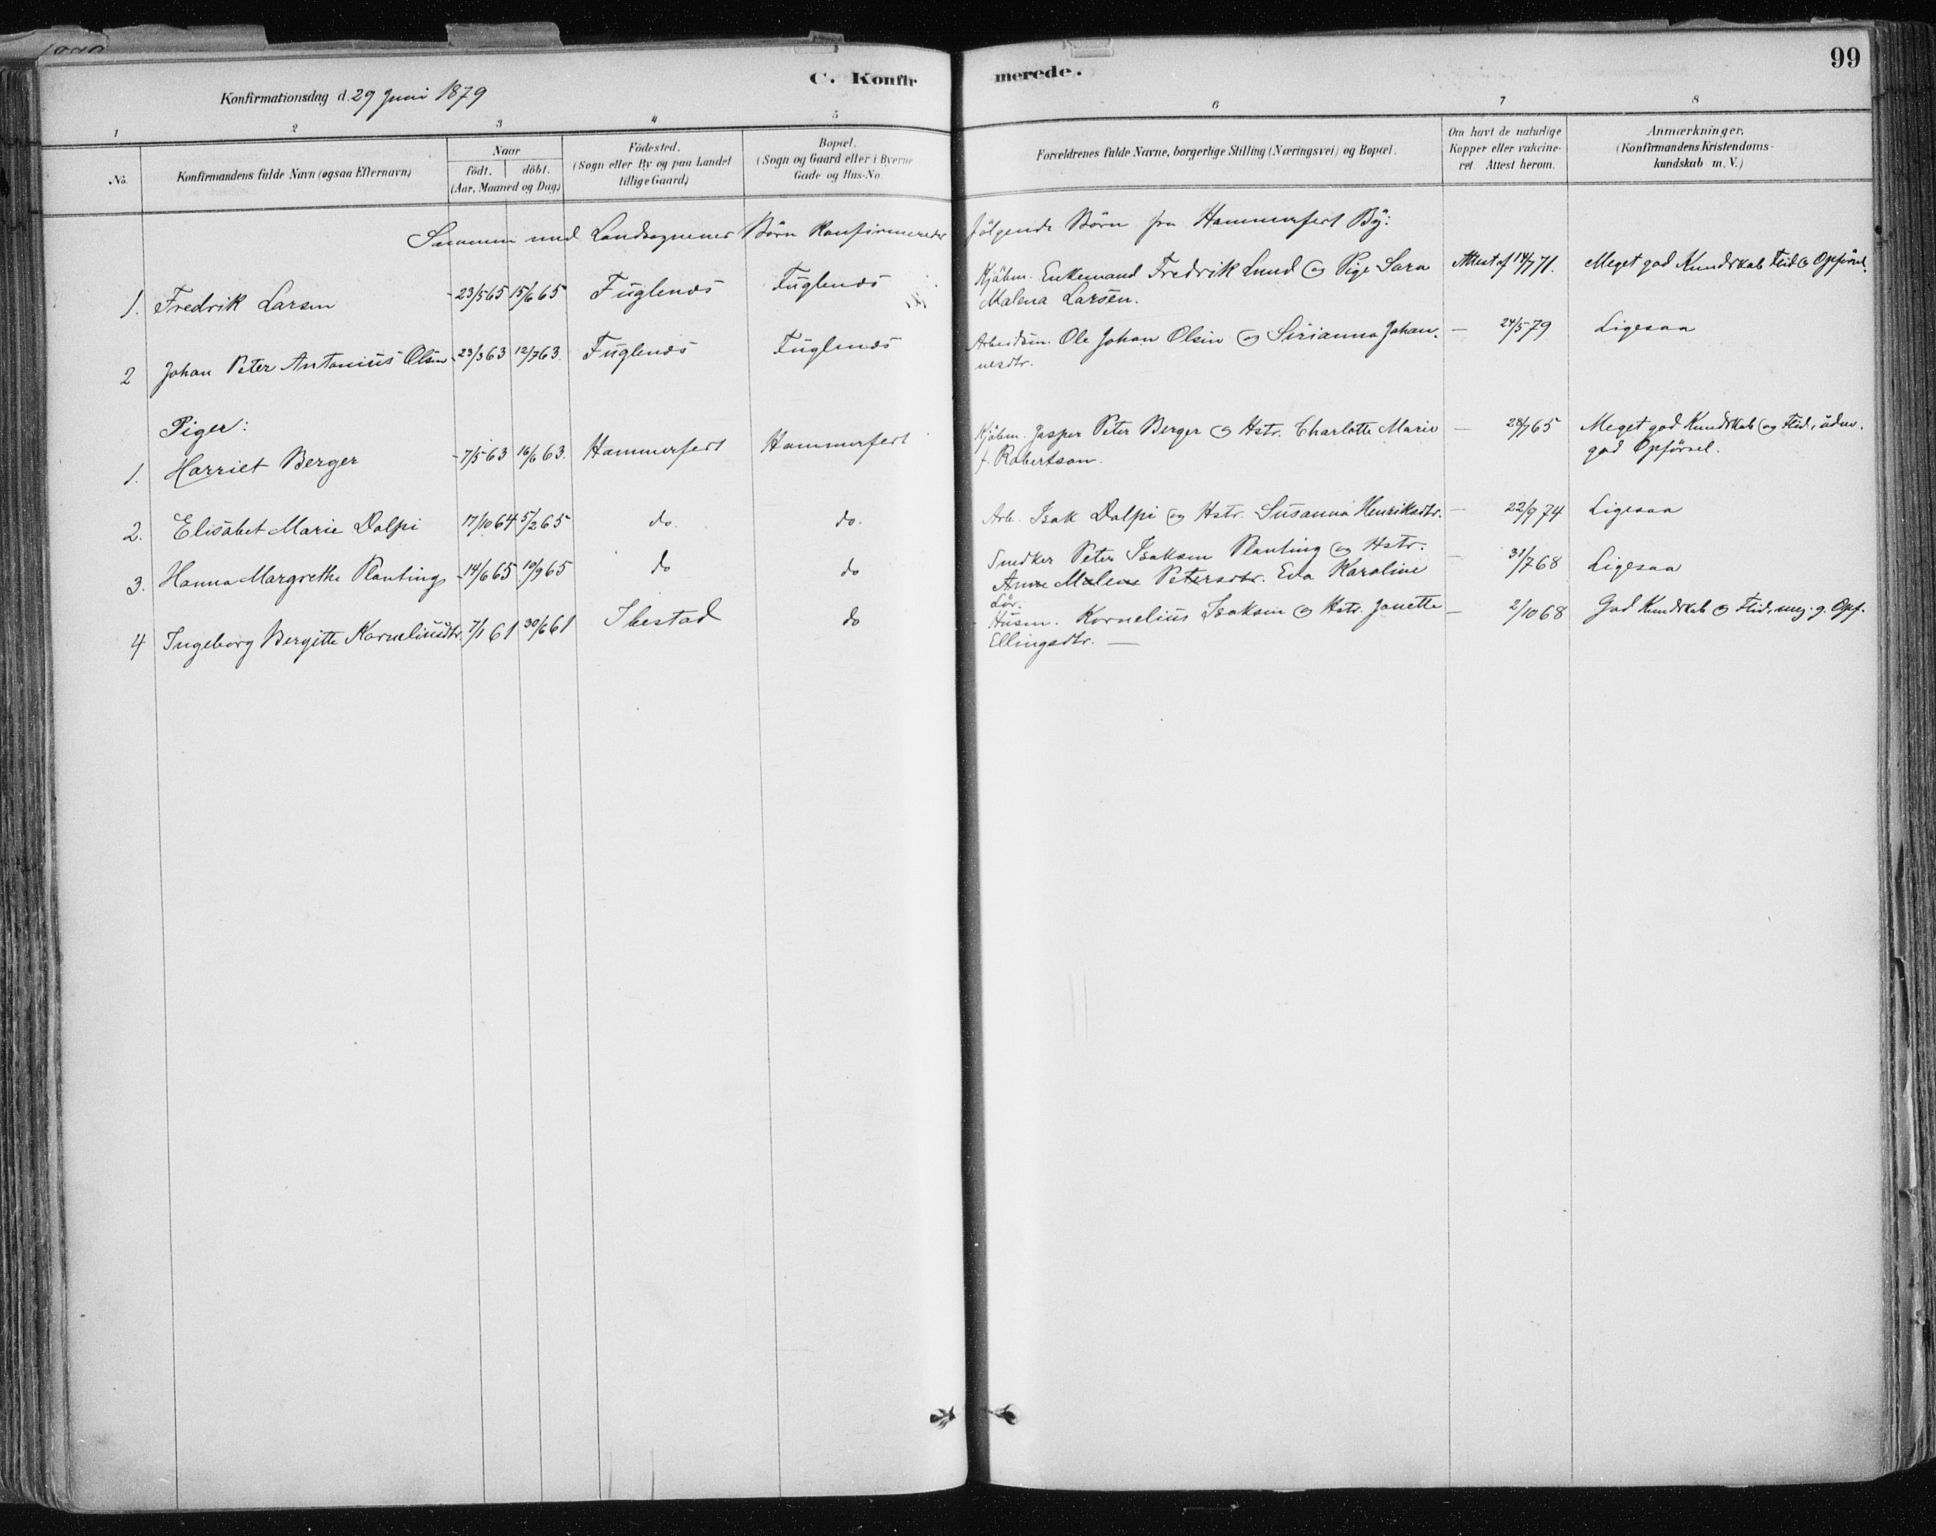 99
C. Konfirmerede.
Konfirmationsdag d. 29 Juni 1879
1 2 3 4 5 6 7 8
No. Konfirmandens fulde Navn (ogsaa Efternavn) Naar födt. döbt. (Aar, Maaned og Dag) Födested. (Sogn eller By og paa Landet tillige Gaard) Bopæl. (Sogn og Gaard eller i Byerne Gade og Hus-No. Forældrenes fulde Navne, borgerlige Stilling (Næringsvei) og Bopæl. Om havt de naturlige Kopper eller vakcineret. Attest herom. Anmærkninger. (Konfirmandens Kristendomskundskab m. V.)
Sammen med Landsognenes Börn konfirmeredes följende Börn fra Hammerfest By:
1. Fredrik Larsen 23/5 65 15/6 65 Fuglenæs Fuglenæs Kjöbm. Enkemand Fredrik Lund og Pige Sara Attest af 14/7 71. Meget god Kundskab Flid og Opförsel.
Malena Larsen.
2 Johan Peter Antonius Olsen 23/3 63 12/7 63. Fuglenæs Fuglenæs Arbeidsm. Ole Johan Olsen og Sirianna Johan- — 24/5 79 Ligesaa
nesdtr.
Piger:
1. Harriet Berger 7/5 63 16/6 63. Hammerfest Hammerfest Kjöbm. Jasper Peter Berger og Hstr. Charlotte Marie — 28/7 65 Meget god Kundskab og Flid, udm.
f. Robertson. god Opförsel.
2. Elisabet Marie Dalpi 17/10 64 5/2 65 do. do. Arb. Isak Dalpi og Hstr. Susanna Henriksdtr. — 22/9 74 Ligesaa
3. Hanna Margrethe Planting 14/6 65 10/9 65 do do Snedker Peter Isaksen Planting og Hstr. — 31/7 68 Ligesaa
Anne Malene Petersdtr. Eva Karoline
4 Ingeborg Bergitte Korneliusdtr. 7/1 61 30/6 61 Ibestad do Husm. Kornelius Isaksen og Hstr. Janette — 2/10 68 God Kundskab og Flid, meg. g. Opf.
Ellingsdtr. —